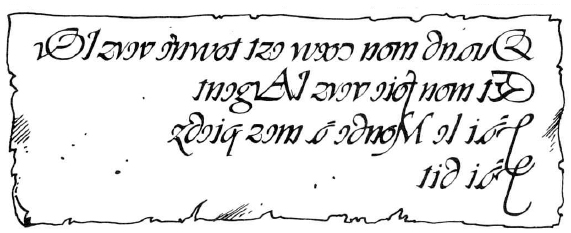 Quand mon cœur est tourné vers lOr
Et mon foie vers lArgent
J'ai le Monde à mes pieds
J'ai dit